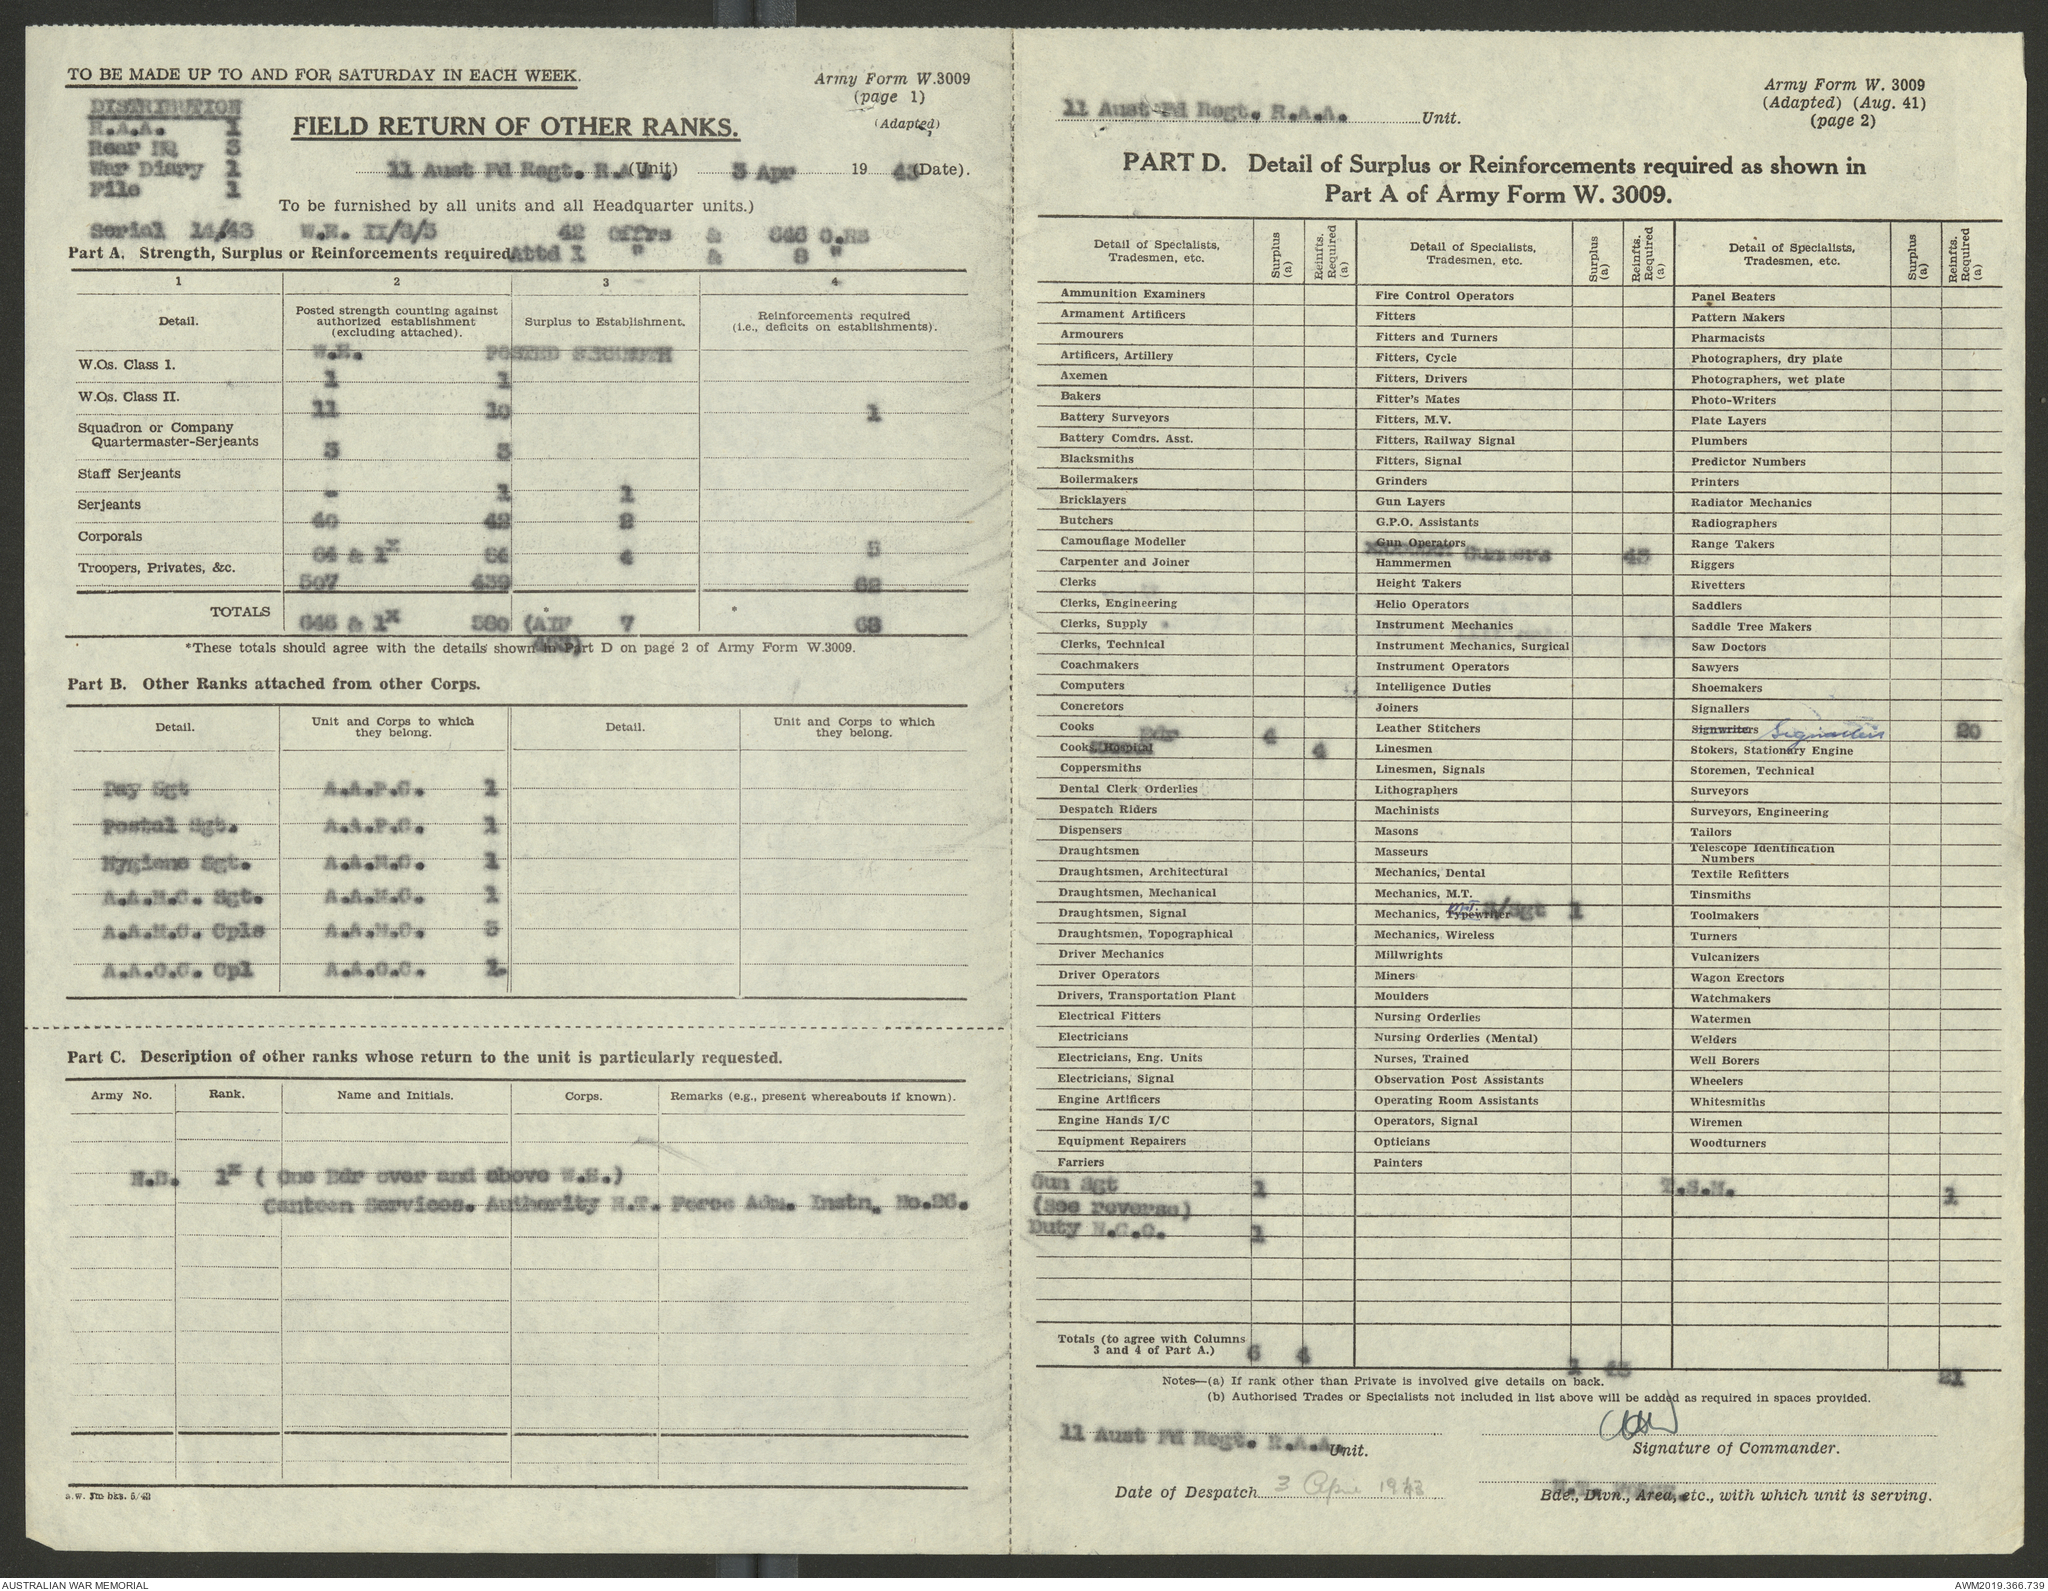 TO BE MADE UP TO AND FOR SATURDAY IN EACH WEEK.
Army Form W.3009
(page 1)
(Adapted)
DISTRIBUTION
R.A.A. 1
Rear HQ 3
War Diary 1
File 1
FIELD RETURN OF OTHER RANKS.
11 Aust Fd Regt. R.A.A. (Unit) 3 Apr 1943 (Date).
To be furnished by all units and all Headquarter units.)
Serial 14/43 W.E. II/3/3 42 Offrs & 646 O.RS
Attd 1 " & 8 "
Part A. Strength, Surplus or Reinforcements required
1 2 3 4
Detail. Posted strength counting against authorized establishment (excluding attached). Surplus to Establishment. Reinforcements required (i.e., deficits on establishments).
W.E. POSTED STRENGTH
W.Os. Class I. 1 1
W.Os. Class II. 11 10 1
Squadron or Company Quartermaster-Serjeants 3 3
Staff Serjeants - 1 1
Serjeants 40 42 2
Corporals 64 & 1x 64 4 5
Troopers, Privates, &c. 507 439 62
TOTALS 646 & 1x 580 (AIF * 7 * 68
*These totals should agree with the details shown in Part D on page 2 of Army Form W.3009.
Part B. Other Ranks attached from other Corps.
Detail. Unit and Corps to which they belong. Detail. Unit and Corps to which they belong.
Pay Sgt A.A.P.C. 1
Postal Sgt. A.A.P.C. 1
Hygiene Sgt. A.A.M.C. 1
A.A.M.C. Sgt. A.A.M.C. 1
A.A.M.C. Cpls A.A.M.C. 3
A.A.C.C. Cpl A.A.C.C. 1.
Part C. Description of other ranks whose return to the unit is particularly requested.
Army No. Rank. Name and Initials. Corps. Remarks (e.g., present whereabouts if known).
N.B. 1x ( One Bdr over and above W.E.)
Canteen Services. Authority N.T. Force Adm. Instn. No.26.
Army Form W. 3009
(Adapted) (Aug. 41)
(page 2)
11 Aust Fd Regt. R.A.A. Unit.
PART D. Detail of Surplus or Reinforcements required as shown in
Part A of Army Form W. 3009.
Detail of Specialists, Tradesmen, etc. Surplus (a) Reinfts. Required (a) Detail of Specialists, Tradesmen, etc. Surplus (a) Reinfts. Required (a) Detail of Specialists, Tradesmen, etc. Surplus (a) Reinfts. Required (a)
Ammunition Examiners
Armament Artificers
Armourers
Artificers, Artillery
Axemen
Bakers
Battery Surveyors
Battery Comdrs. Asst.
Blacksmiths
Boilermakers
Bricklayers
Butchers
Camouflage Modeller
Carpenter and Joiner
Clerks
Clerks, Engineering
Clerks, Supply
Clerks, Technical
Coachmakers
Computers
Concretors
Cooks Bdr 4
Cooks, Hospital 4
Coppersmiths
Dental Clerk Orderlies
Despatch Riders
Dispensers
Draughtsmen
Draughtsmen, Architectural
Draughtsmen, Mechanical
Draughtsmen, Signal
Draughtsmen, Topographical
Driver Mechanics
Driver Operators
Drivers, Transportation Plant
Electrical Fitters
Electricians
Electricians, Eng. Units
Electricians, Signal
Engine Artificers
Engine Hands I/C
Equipment Repairers
Farriers
Gun Sgt 1
(See reverse)
Duty N.C.O. 1
Fire Control Operators
Fitters
Fitters and Turners
Fitters, Cycle
Fitters, Drivers
Fitter's Mates
Fitters, M.V.
Fitters, Railway Signal
Fitters, Signal
Grinders
Gun Layers
G.P.O. Assistants
Gun Operators
Gunners 43
Hammermen
Height Takers
Helio Operators
Instrument Mechanics
Instrument Mechanics, Surgical
Instrument Operators
Intelligence Duties
Joiners
Leather Stitchers
Linesmen
Linesmen, Signals
Lithographers
Machinists
Masons
Masseurs
Mechanics, Dental
Mechanics, M.T.
Mechanics, Typewriter M.T. S/Sgt 1
Mechanics, Wireless
Millwrights
Miners
Moulders
Nursing Orderlies
Nursing Orderlies (Mental)
Nurses, Trained
Observation Post Assistants
Operating Room Assistants
Operators, Signal
Opticians
Painters
Panel Beaters
Pattern Makers
Pharmacists
Photographers, dry plate
Photographers, wet plate
Photo-Writers
Plate Layers
Plumbers
Predictor Numbers
Printers
Radiator Mechanics
Radiographers
Range Takers
Riggers
Rivetters
Saddlers
Saddle Tree Makers
Saw Doctors
Sawyers
Shoemakers
Signallers
Signwriters Signallers 20
Stokers, Stationary Engine
Storemen, Technical
Surveyors
Surveyors, Engineering
Tailors
Telescope Identification Numbers
Textile Refitters
Tinsmiths
Toolmakers
Turners
Vulcanizers
Wagon Erectors
Watchmakers
Watermen
Welders
Well Borers
Wheelers
Whitesmiths
Wiremen
Woodturners
T.S.M. 1
Totals (to agree with Columns 3 and 4 of Part A.) 6 4 1 43 21
Notes—(a) If rank other than Private is involved give details on back.
(b) Authorised Trades or Specialists not included in list above will be added as required in spaces provided.
11 Aust Fd Regt. R.A.A. Unit.
Signature of Commander.
Date of Despatch 3 Apr 1943
Bde., Divn., Area, etc., with which unit is serving.
AUSTRALIAN WAR MEMORIAL
AWM2019.366.739